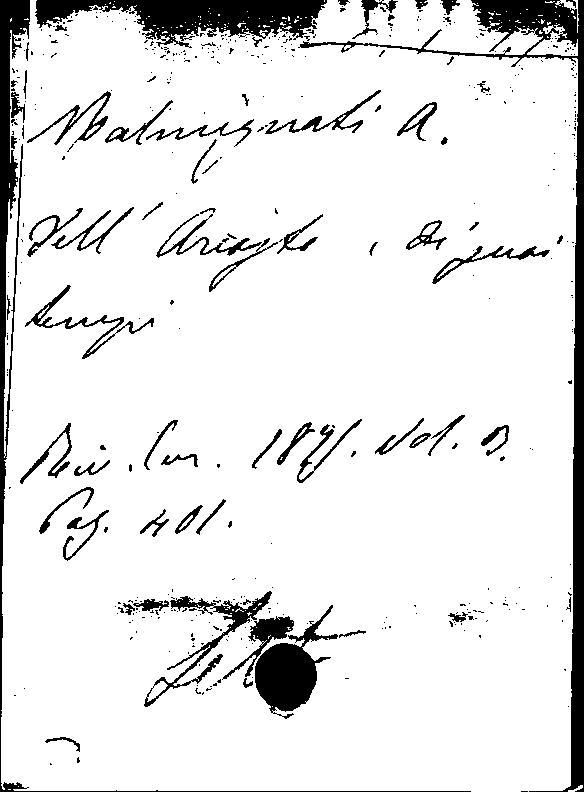 Malmignati A.
Dell' Ariosto, di suoi
tempi
Riv. Eur. 1871. Vol. 3.
Pag. 401.